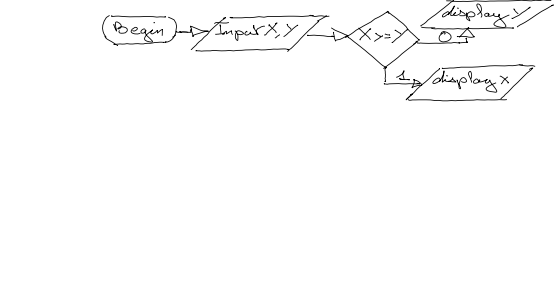 Begin
Input X, Y
X >= Y
display Y
0
1
display x